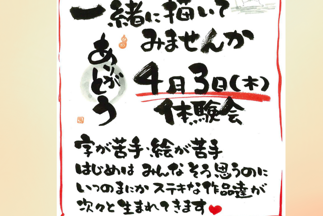 一緒に描いて
みませんか
ありがとう
4月3日(木)
体験会
字が苦手・絵が苦手
はじめは みんな そう思うのに
いつのまにか ステキな作品達が
次々と生まれてきます